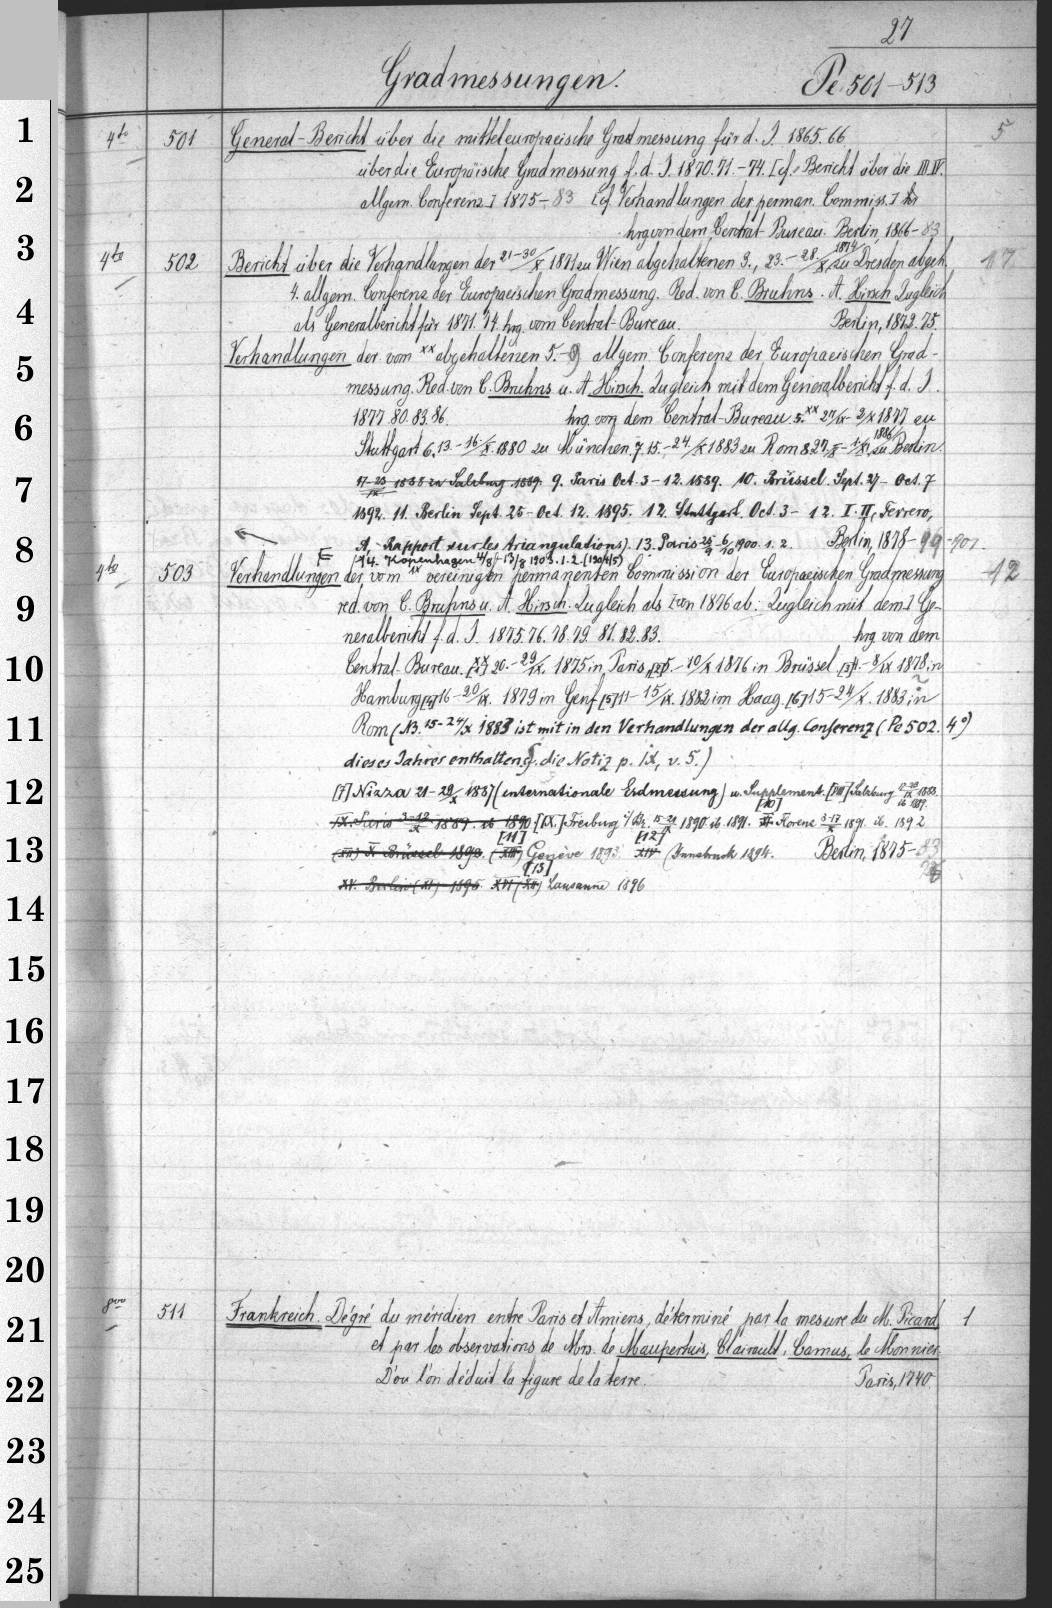 27
Gradmessungen. Pe. 501-513
1
4to 501 General-Bericht über die mitteleuropaeische Gradmessung für d. J. 1865.66 5
über die Europäische Gradmessung f. d. J. 1870.71.-74. [cf. Bericht über die III. IV.
2
allgem. Conferenz.] 1875-83 [cf. Verhandlungen der perman. Commiss.]
hrg. von dem Central-Bureau. Berlin, 1866-83
3
4to 502 Bericht über die Verhandlungen der 21-30/X 1871 zu Wien abgehaltenen 3., 23.-28/X 1874 zu Dresden abgeh. 17
4. allgem. Conferenz der Europaeischen Gradmessung. Red. von C. Bruhns. A. Hirsch. Zugleich
4
als Generalbericht für 1871. 74 hrg. vom Central-Bureau. Berlin, 1872.75.
Verhandlungen der vom xx abgehaltenen 5.-9 allgem. Conferenz der Europaeischen Grad-
5
messung. Red. von C. Bruhns u. A. Hirsch. Zugleich mit dem Generalbericht f. d. J.
6
1877.80.83.86. hrg. von dem Central-Bureau 5. xx 27/IX-2/X 1877 zu
Stuttgart 6. 13.-16/X. 1880 zu München. 7. 15.-24/X 1883 zu Rom 8. 27/X- 1886 zu Berlin.
7
1888 zu Salzburg 1889. 9. Paris Oct. 3-12. 1889. 10. Brüssel. Sept. 27- Oct. 7
1892. 11. Berlin Sept. 25-Oct. 12. 1895. 12. Stuttgart. Oct. 3- 12. I. II, Ferrero,
8
A, Rapport sur les triangulations). 13. Paris 25/9-6/10 1900. 1. 2. Berlin, 1878-99-901
14. Kopenhagen 4/8-13/8 1903. 1. 2. (1904/5)
4to 503 Verhandlungen der vom xx vereinigten permanenten Commission der Europaeischen Gradmessung 12
9
red. von C. Bruhns u. A. Hirsch. Zugleich als [von 1876 ab: Zugleich mit dem] Ge-
neralbericht f. d. J. 1875.76.78.79. 81.82.83. hrg. von dem
10
Central-Bureau. 20.-29/IX. 1875 in Paris, [2] 5.-10/X 1876 in Brüssel [3] 4.-8/IX 1878 in
Hamburg [4] 16-20/IX. 1879 in Genf [5] 11-15/IX. 1882 im Haag. [6] 15-24/X. 1883 in
11
Rom (NB. 15-24/X 1883 ist mit in den Verhandlungen der allg. Conferenz (Pe 502. 4°)
dieses Jahres enthalten, cf. die Notiz p. IX, v. 5.)
12
[7] Nizza 21-29/X 1887 (internationale Erdmessung) u. Supplement. [VIII] Salzburg 1888. ib. 1889.
[10]
IX. Paris 3-12/X 1889. ib 1890. [IX.] Freiburg i/Br. 15-21/IX 1890 ib. 1891. XI. Florenz 8-17/X 1891. ib. 1892
[11] [12]
13
(XII) X Brüssel 1892. (XIII) Genève 1893. XIV (Innsbruck 1894. Berlin, 1875-83
[13]
XV. Berlin (XI) 1895. XVI (XII) Lausanne 1896
14
15
16
17
18
19
20
8vo 511 Frankreich. Dégré du méridien entre Paris et Amiens, déterminé par la mesure du M. Picard 1
21
et par les observations de Mrs. de Maupertuis, Clairault, Camus, le Monnier.
22
D'ou l'on déduit la figure de la terre. Paris, 1740.
23
24
25